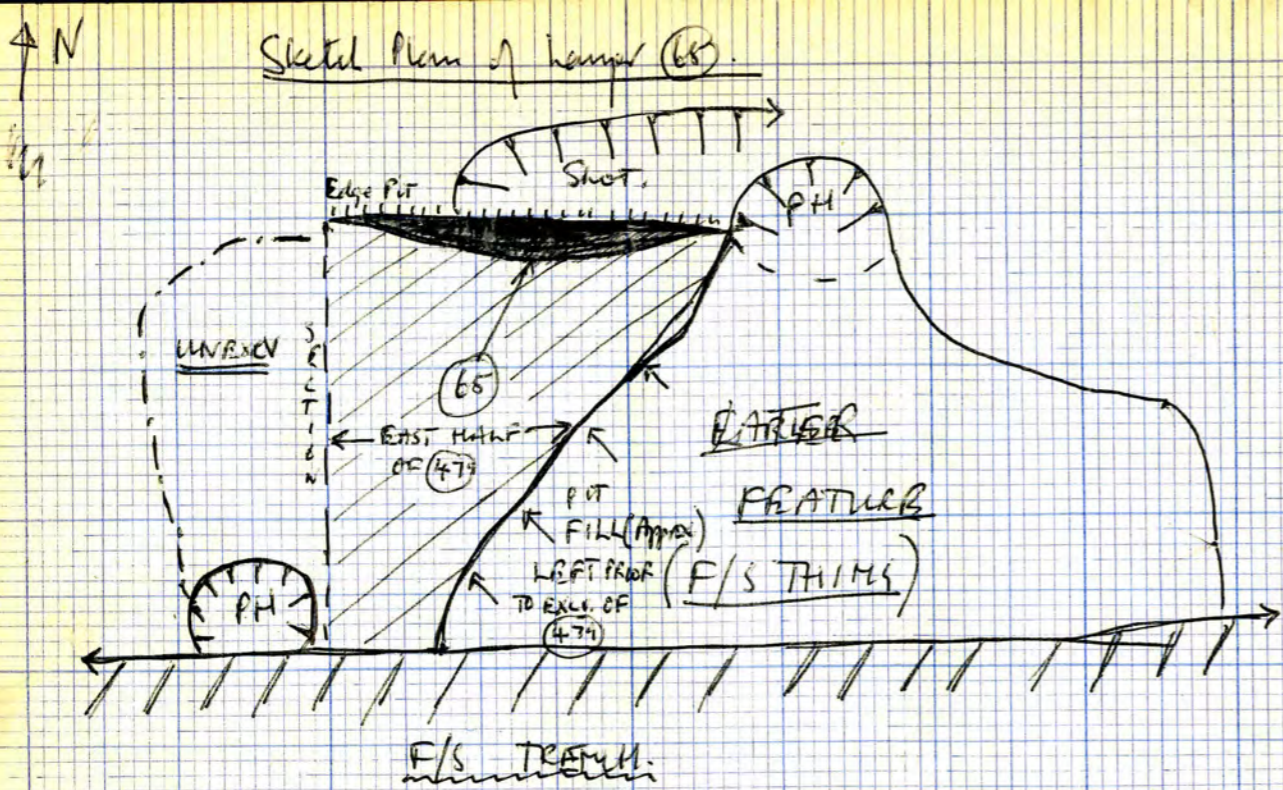 N
Sketch Plan of Layer 65.
Slot.
Edge Pit
PH
UNEXCV
SECTION
65
EAST HALF
OF 479
EARLIER
FEATURE
(F/S THING)
PIT
FILL (Approx)
LEFT PRIOR
TO EXCV. OF
479
PH
F/S TRENCH.